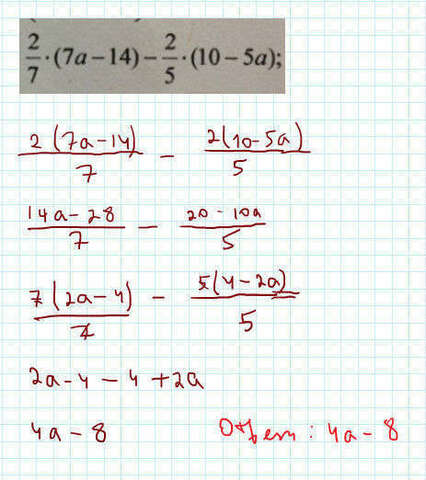 2/7 · (7a − 14) − 2/5 · (10 − 5a);
2(7a-14)/7 - 2(10-5a)/5
14a-28/7 - 20-10a/5
7(2a-4)/7 - 5(4-2a)/5
2a-4-4+2a
4a-8
Ответ: 4a-8